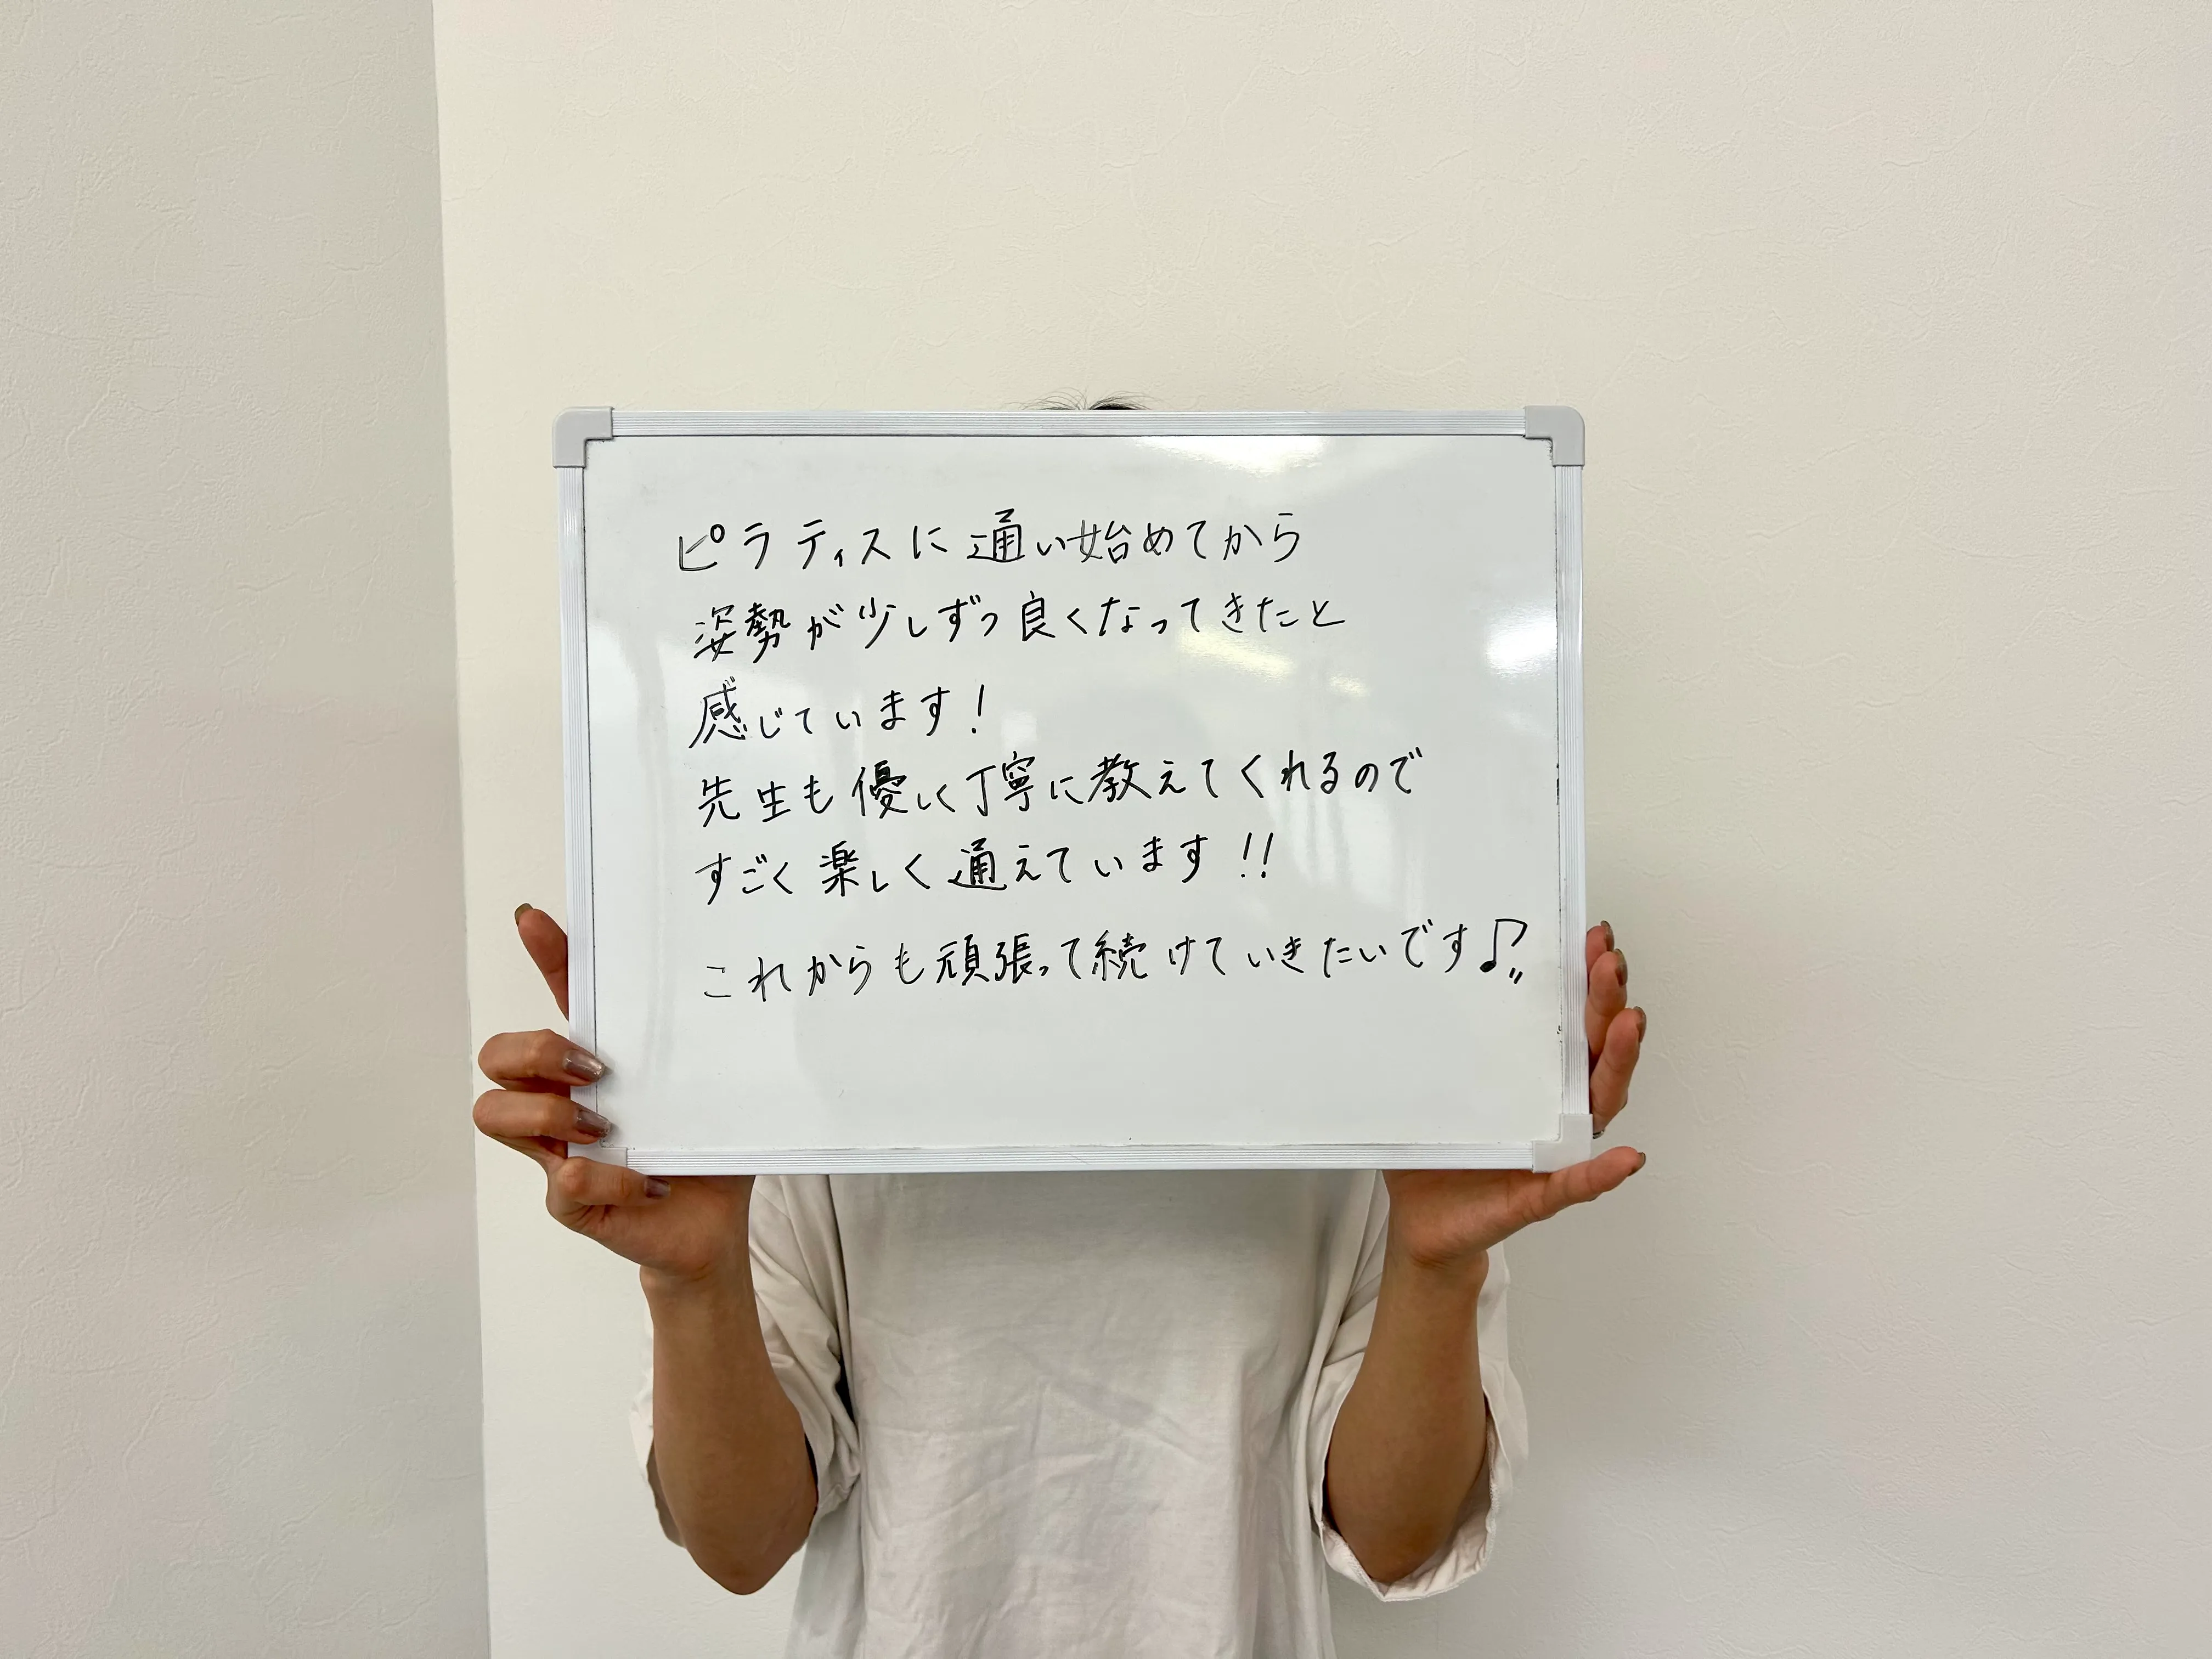 ピラティスに通い始めてから
姿勢が少しずつ良くなってきたと
感じています!
先生も優しく丁寧に教えてくれるので
すごく楽しく通えています!!
これからも頑張って続けていきたいです♪